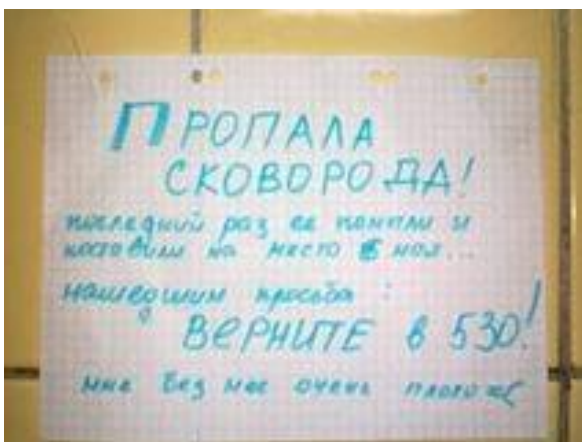 ПРОПАЛА
СКОВОРОДА!
последний раз ее помыли и
поставили на место в
нашедшим просьба:
ВЕРНИТЕ в 530!
мне без нее очень плохо =(